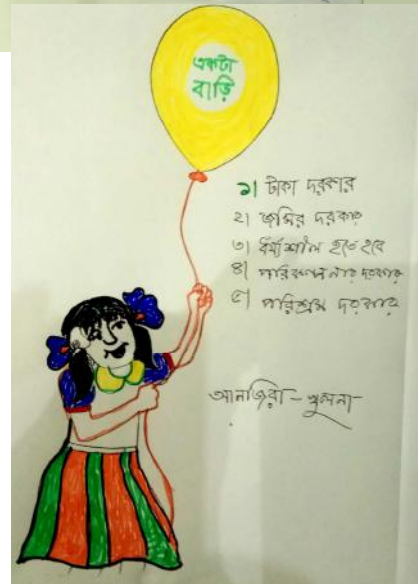 একটা
বাড়ি
১| টাকা দরকার
২| জমির দরকার
৩| ধর্য্যশীল হতে হবে
৪| পরিকল্পনার দরকার
৫| পরিশ্রম দরকার
আনজিরা - খুলনা